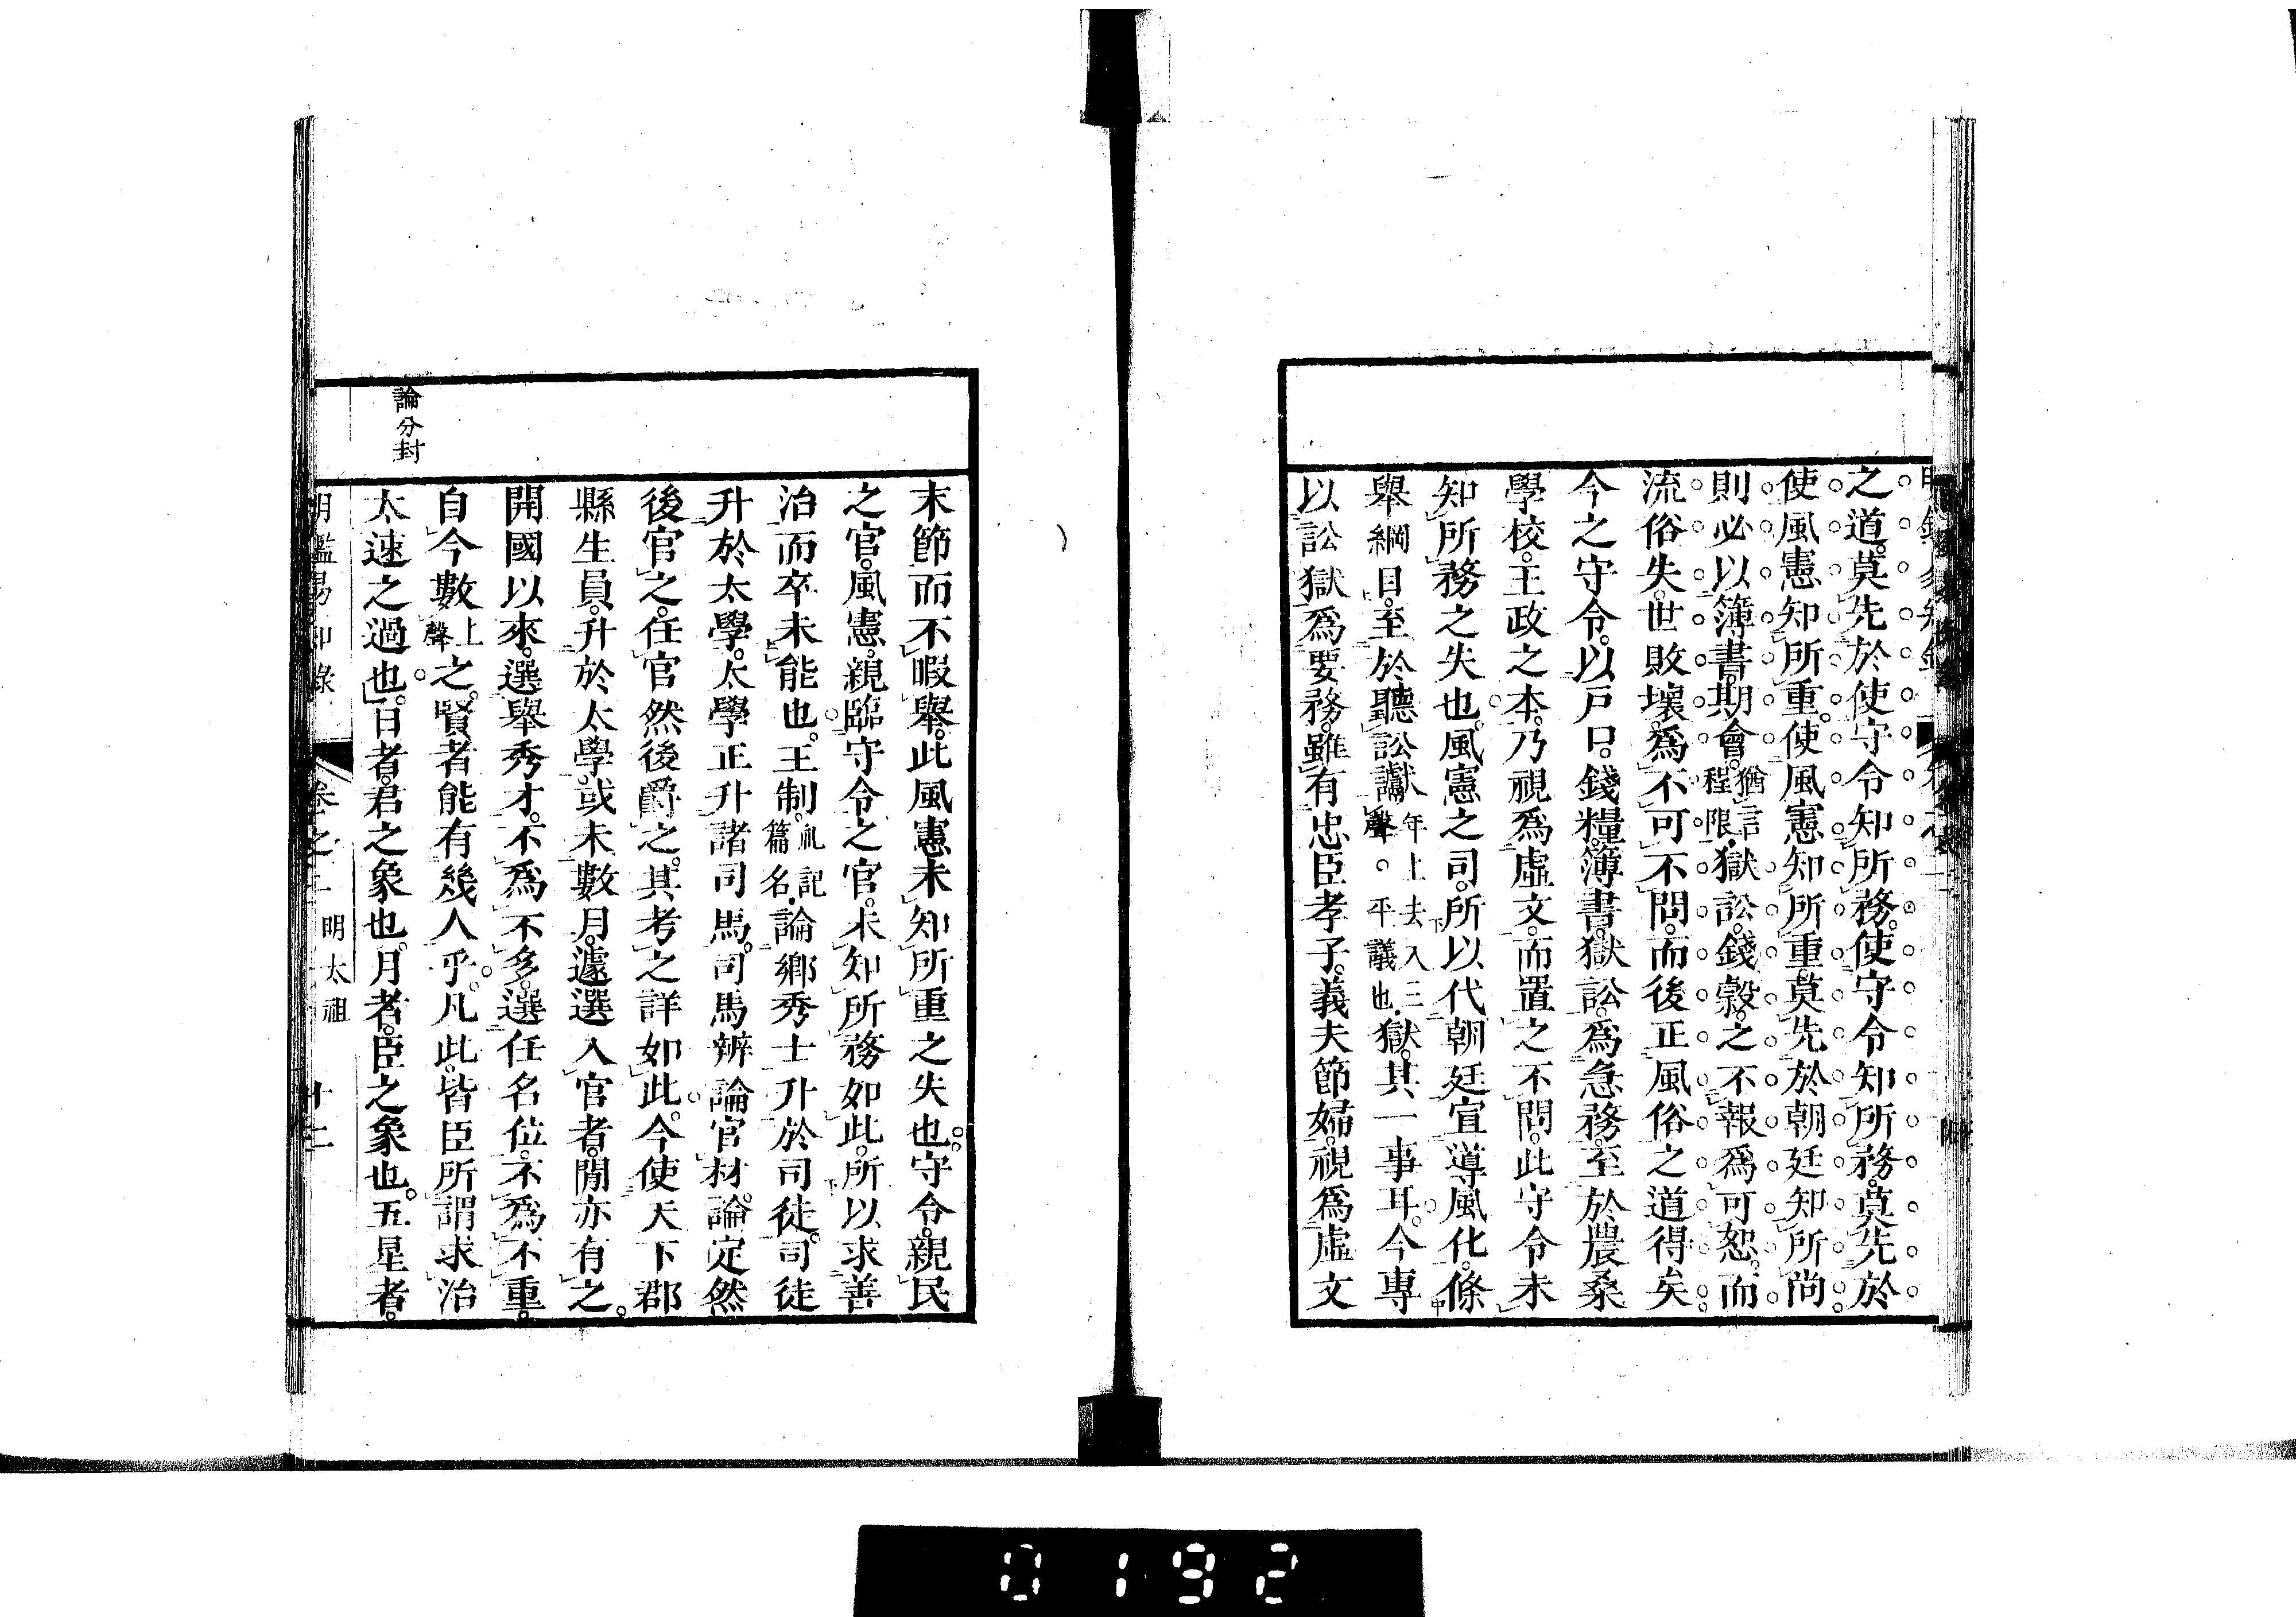 之道。莫先於使守令知所務。使守令知所務。莫先於
使風憲知所重。使風憲知所重。莫先於朝廷知所尚
則必以簿書。期會。猶言程限。獄訟。錢穀。之不報爲可恕。而
流俗失。世敗壞。爲不可不問。而後正風俗之道得矣。
今之守令。以戶口。錢糧。簿書。獄訟。爲急務。至於農桑
學校。王政之本。乃視爲虛文。而置之不問。此守令未
知所務之失也。風憲之司。所以代朝廷宣導風化。條
舉綱目。至於聽訟讞獄。其一事耳。今專
以訟獄爲要務。雖有忠臣孝子。義夫節婦。視爲虛文
末節而不暇舉。此風憲未知所重之失也。守令。親民
之官。風憲。親臨守令之官。未知所務如此。所以求善
治而卒未能也。王制。礼記篇名。論鄉秀士升於司徒。司徒
升於太學。太學正升諸司馬。司馬辨論官材。論定然
後官之。任官然後爵之。其考之詳如此。今使天下郡
縣生員。升於太學。或未數月。遽選入官者。閒亦有之。
開國以來。選舉秀才。不爲不多。選任名位。不爲不重。
自今數上聲之。賢者能有幾人乎。凡此。皆臣所謂求治
論分封
太速之過也。日者。君之象也。月者。臣之象也。五星者。
明鑑易知錄 卷之一 明太祖 十二
0192